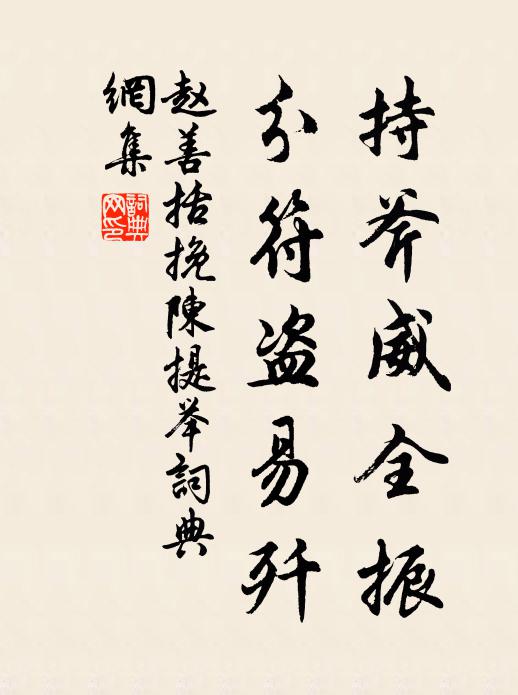 持斧威全振
分符盗易歼
赵善括挽陳提举詞典
網集
詞典
网印